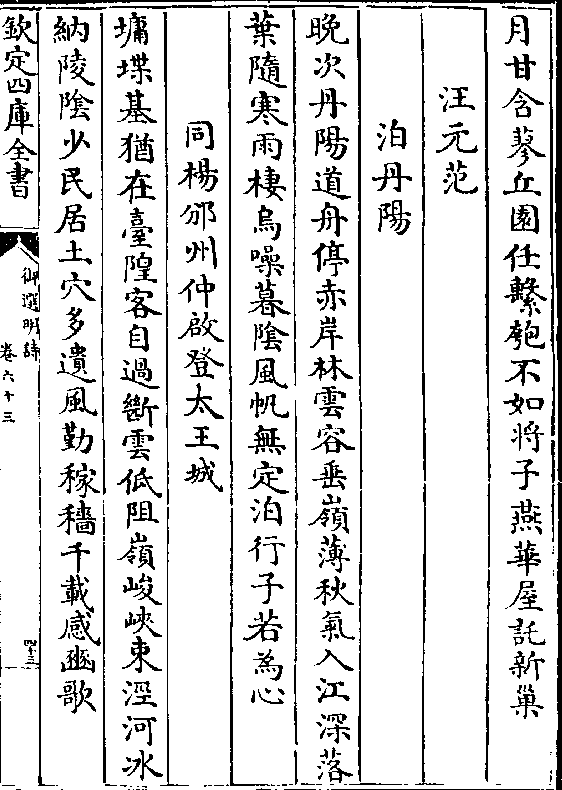 月甘含蓼丘園任繫匏不如將子燕華屋託新巢
汪元范
泊丹陽
晚次丹陽道舟停赤岸林雲容垂嶺薄秋氣入江深落
葉隨寒雨棲烏噪暮陰風帆無定泊行子若為心
同楊邠州仲啟登太王城
墉堞基猶在臺隍客自過斷雲低阻嶺峻峽束涇河冰
納陵陰少民居土穴多遺風勤稼穡千載感豳歌
欽定四庫全書
御選明詩
卷六十三
四十三